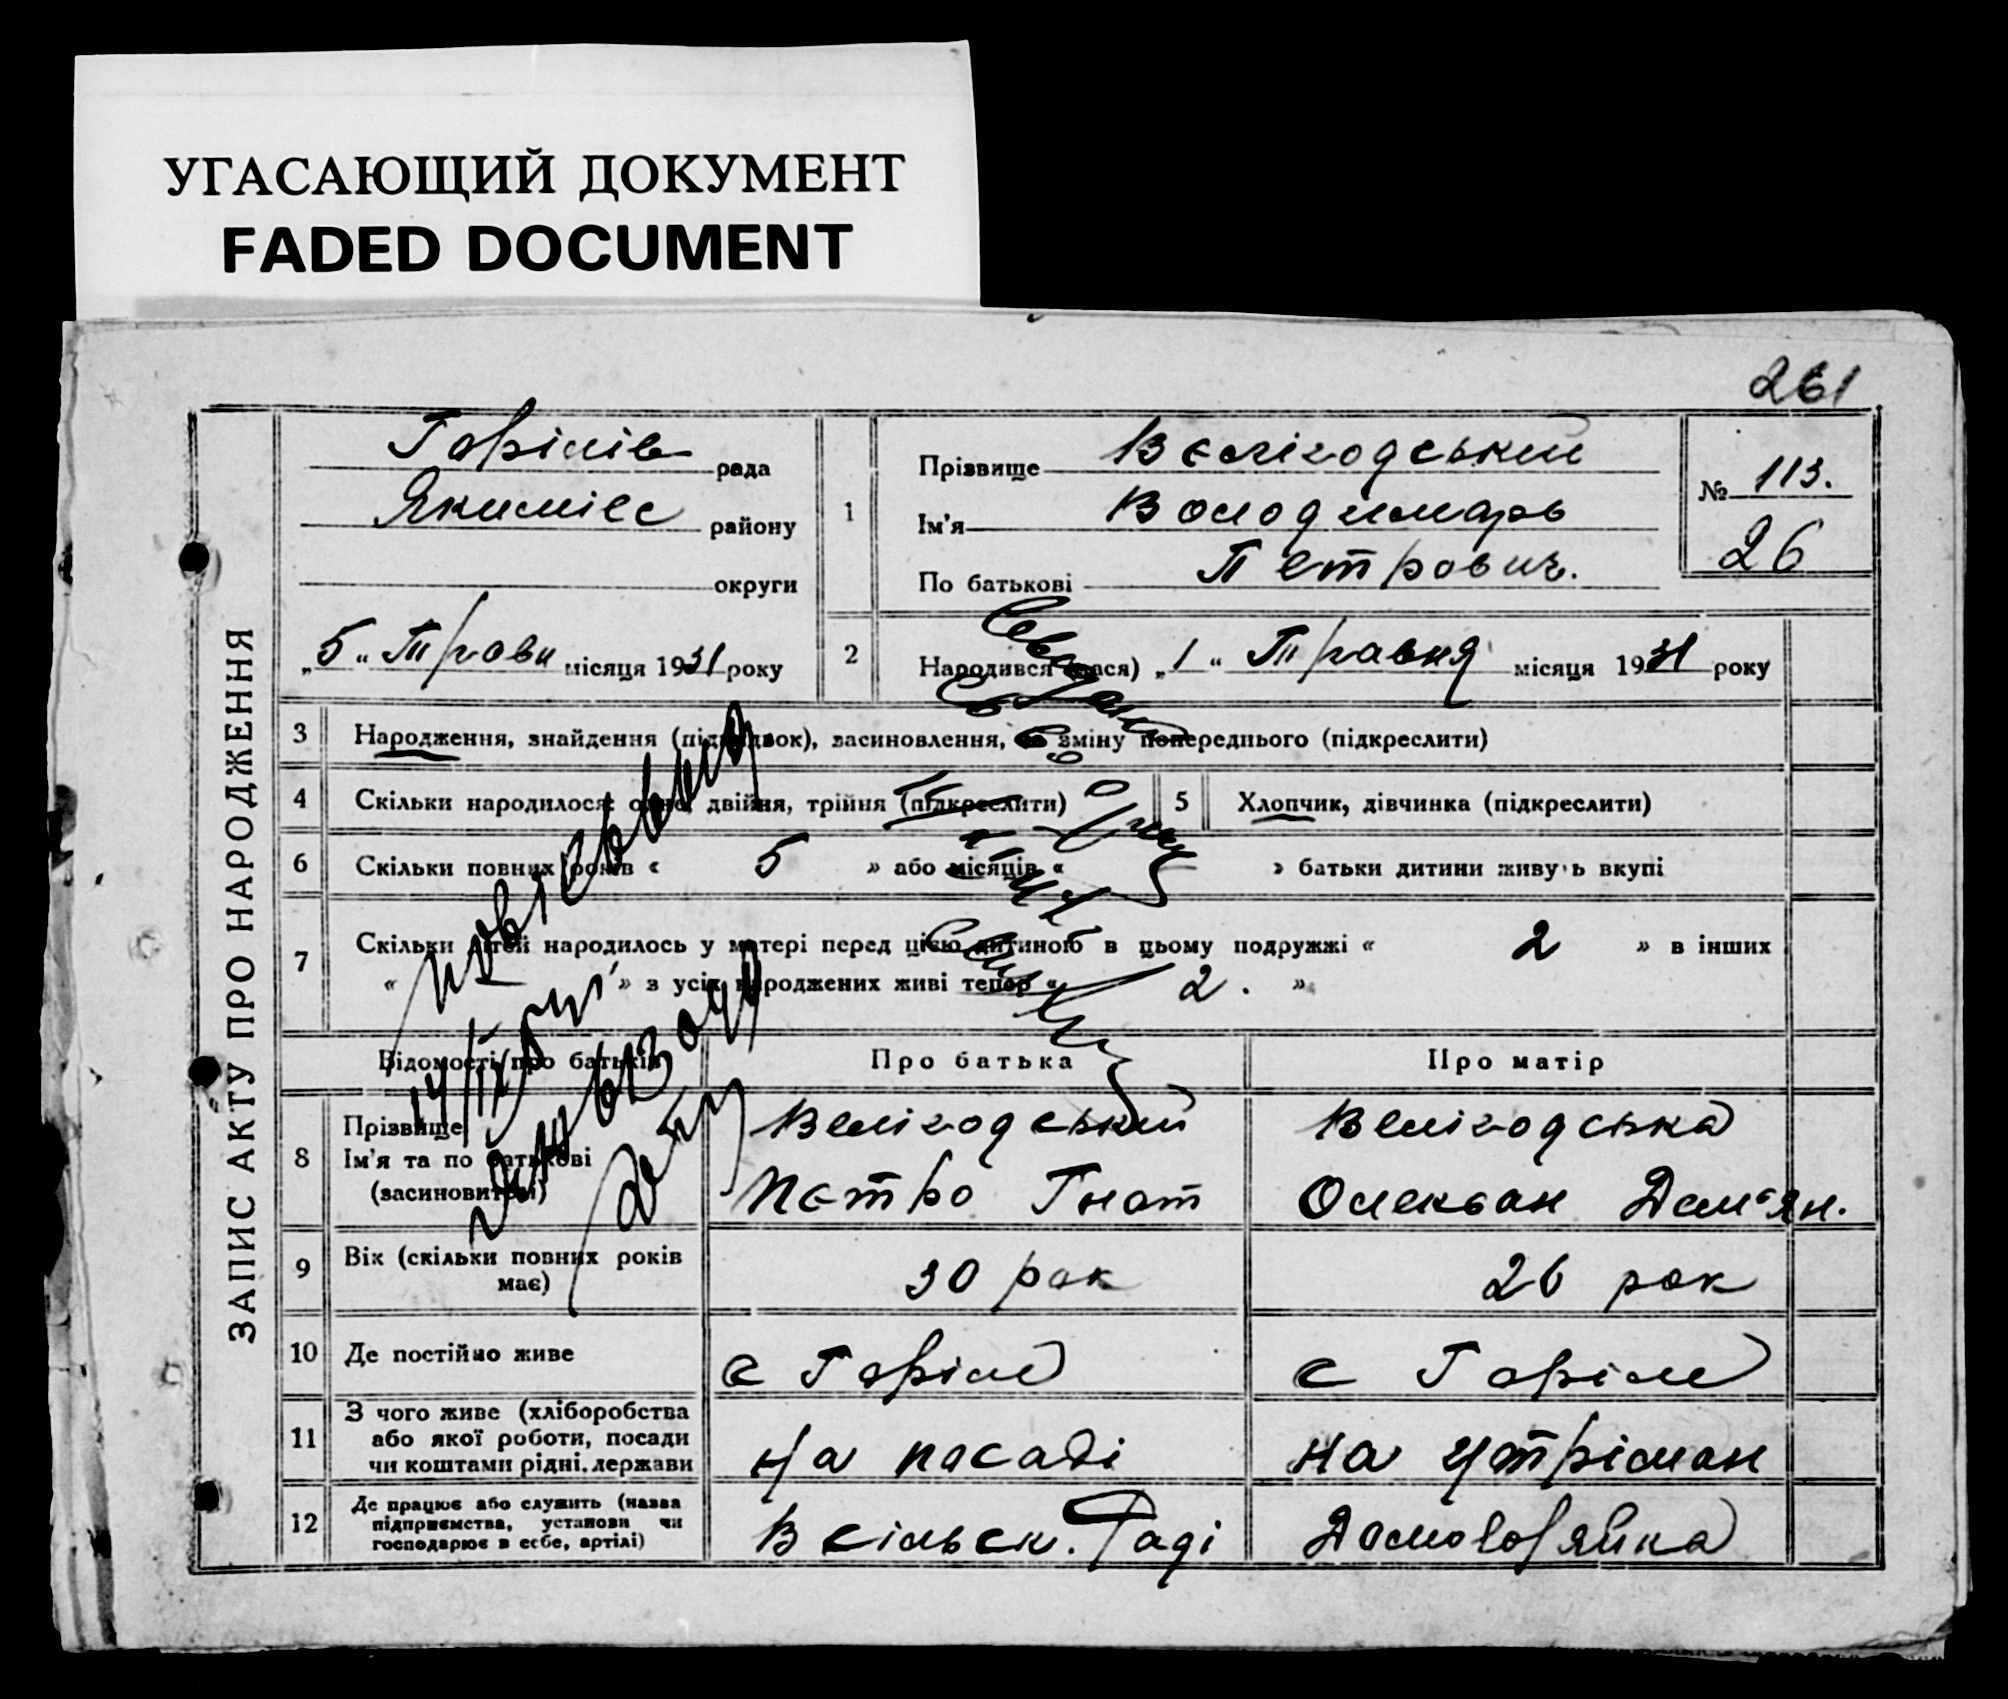 УГАСАЮЩИЙ ДОКУМЕНТ
FADED DOCUMENT
261
ЗАПИС АКТУ ПРО НАРОДЖЕННЯ
Горілів рада
Якимівс району
округи
„5“ Трови місяця 1931 року
1 Прізвище Велігодський
Ім'я Володимиръ
По батькові Петрович.
№ 113.
26
2 Народився (лася) „1“ Травня місяця 1931 року
3 Народження, знайдення (підкидок), засиновлення, зміну попереднього (підкреслити)
4 Скільки народилося: одно, двійня, трійня (підкреслити)
5 Хлопчик, дівчинка (підкреслити)
6 Скільки повних років « 5 » або місяців « » батьки дитини живуь вкупі
7 Скільки дітей народилось у матері перед цією дитиною в цьому подружжі « 2 » в інших
« » з усіх народжених живі тепер « 2. »
Відомості про батьків
Про батька
Про матір
8 Прізвище
Ім'я та по батькові
(засиновителі)
Велігодський
Петро Гнат
Велігодська
Олексан Дем'ян.
9 Вік (скільки повних років
має)
30 рок
26 рок
10 Де постійно живе
с Горіле
с Горіле
11 З чого живе (хліборобства
або якої роботи, посади
чи коштами рідні, держави
На посаді
На утріман
12 Де працює або служить (назва
підприємства, установи чи
господарює в себе, артілі)
В сільск. Раді
Домогосряйка